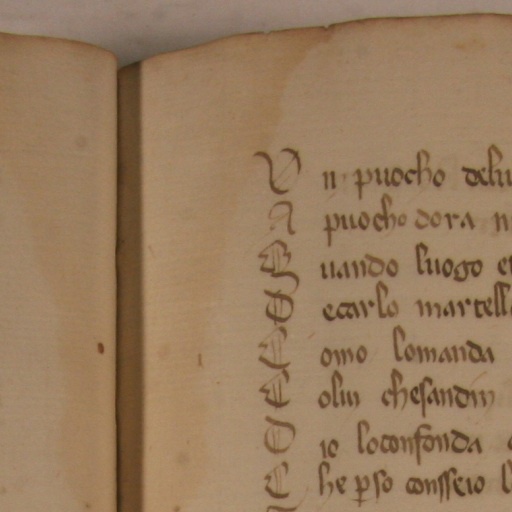 Un puocho delu
A puocho dora n
Quando luogo e
Secarlo martell
Como lomanda
Colui chesandin
Dio loconfonda
Che p̱so consseio l